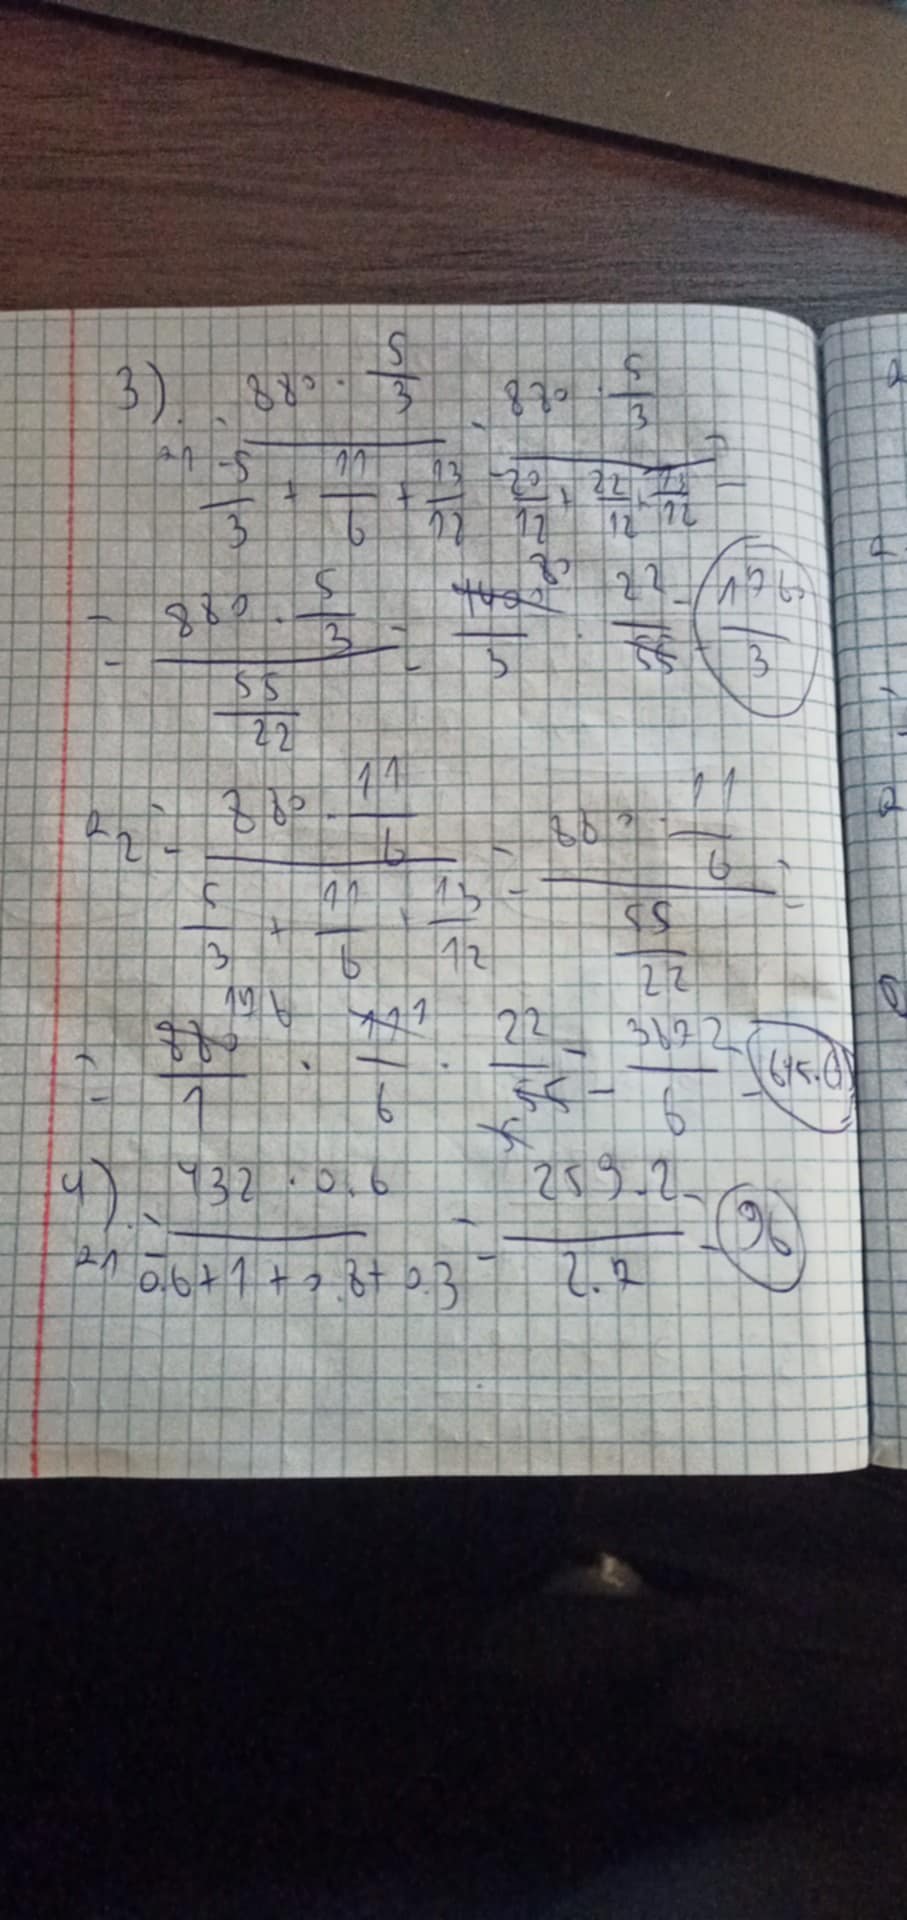 3) a1 = (880 · 5/3) / (5/3 + 11/6 + 13/12) = (880 · 5/3) / (20/12 + 22/12 + 13/12) =
= (880 · 5/3) / (55/22) = 80/3 · 22/55 = 1760/3
a2 = (880 · 11/6) / (5/3 + 11/6 + 13/12) = (880 · 11/6) / (55/22) =
= 880/1 · 11/6 · 22/55 = 3872/6 =
4) a1 = (432 · 0.6) / (0.6 + 1 + 0.8 + 0.3) = 259.2 / 2.7 = 96